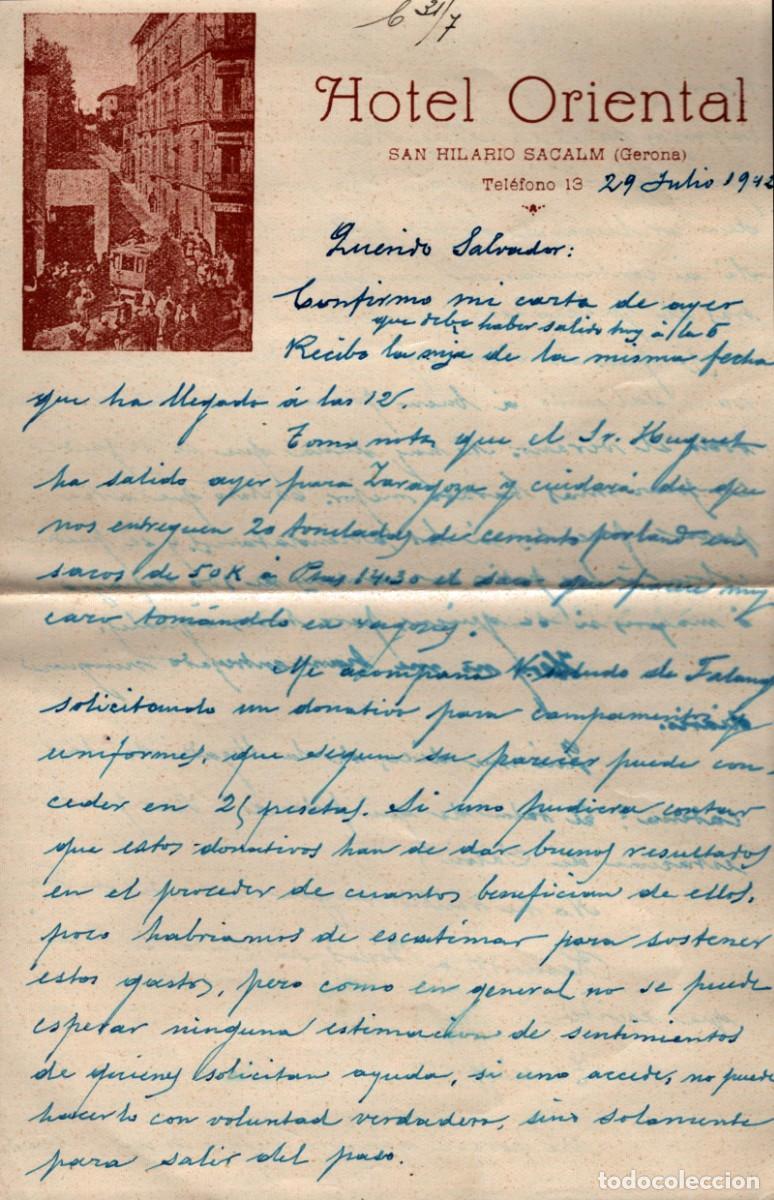 C 31/7
Hotel Oriental
SAN HILARIO SACALM (Gerona)
Teléfono 13 29 Julio 1942
Querido Salvador:
Confirmo mi carta de ayer
que debe haber salido hoy á la 5
Recibo la suya de la misma fecha
que ha llegado á las 12.
Tomo nota que el Sr. Huguet
ha salido ayer para Zaragoza y cuidará de que
nos entreguen 20 toneladas de cemento porland en
sacos de 50K á Ptas 14.30 el saco que parece muy
caro tomándolo en vagones.
Me acompaña V. saludo de Falange
solicitando un donativo para campamentos y
uniformes, que segun su parecer puede con-
ceder en 25 pesetas. Si uno pudiera contar
que estos donativos han de dar buenos resultados
en el proceder de cuantos benefician de ellos,
poco habriamos de escatimar para sostener
estos gastos, pero como en general no se puede
esperar ninguna estimacion de sentimientos
de quienes solicitan ayuda, si uno accede, no puede
hacerlo con voluntad verdadera, sino solamente
para salir del paso.
todocoleccion